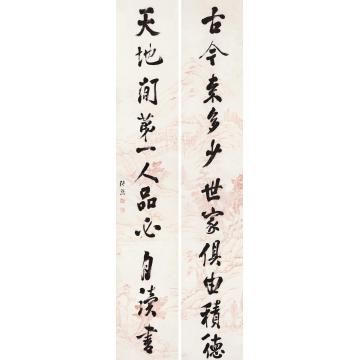 古今来多少世家俱由積德
天地間第一人品必自讀書